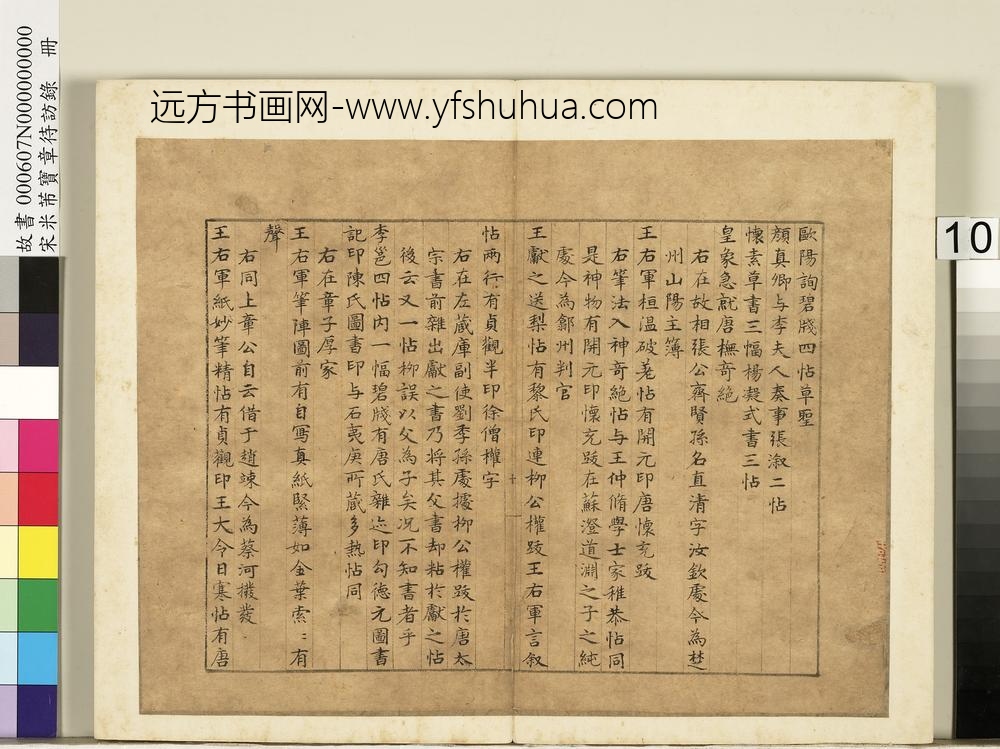 远方书画网-www.yfshuhua.com
故書 000607N000000000
宋米芾寶章待訪錄 冊
10
歐陽詢碧牋四帖草聖
顏真卿与李夫人奏事張淑二帖
懷素草書三幅楊凝式書三帖
皇象急就唐橅奇絶
右在故相張公齊賢孫名直清字汝欽處今為楚
州山陽主簿
王右軍桓温破羗帖有開元印唐懷充跋
右筆法入神奇絶帖与王仲脩學士家稚恭帖同
是神物有開元印懷充跋在蘇澄道淵之子之純
處今為鄜州判官
王獻之送梨帖有黎氏印連柳公權跋王右軍言叙
帖兩行有貞觀半印徐僧權字
右在左藏庫副使劉季孫處據柳公權跋扵唐太
宗書前雜出獻之書乃將其父書却粘扵獻之帖
後云又一帖柳誤以父為子矣况不知書者乎
李邕四帖内一幅碧牋有唐氏雜迹印勾德元圖書
記印陳氏圖書印与石夷庚所藏多熱帖同
右在章子厚家
王右軍筆陣圖前有自寫真紙緊薄如金葉索〻有
聲
右同上章公自云借于趙竦今為蔡河撥發
王右軍紙妙筆精帖有貞觀印王大今日寒帖有唐